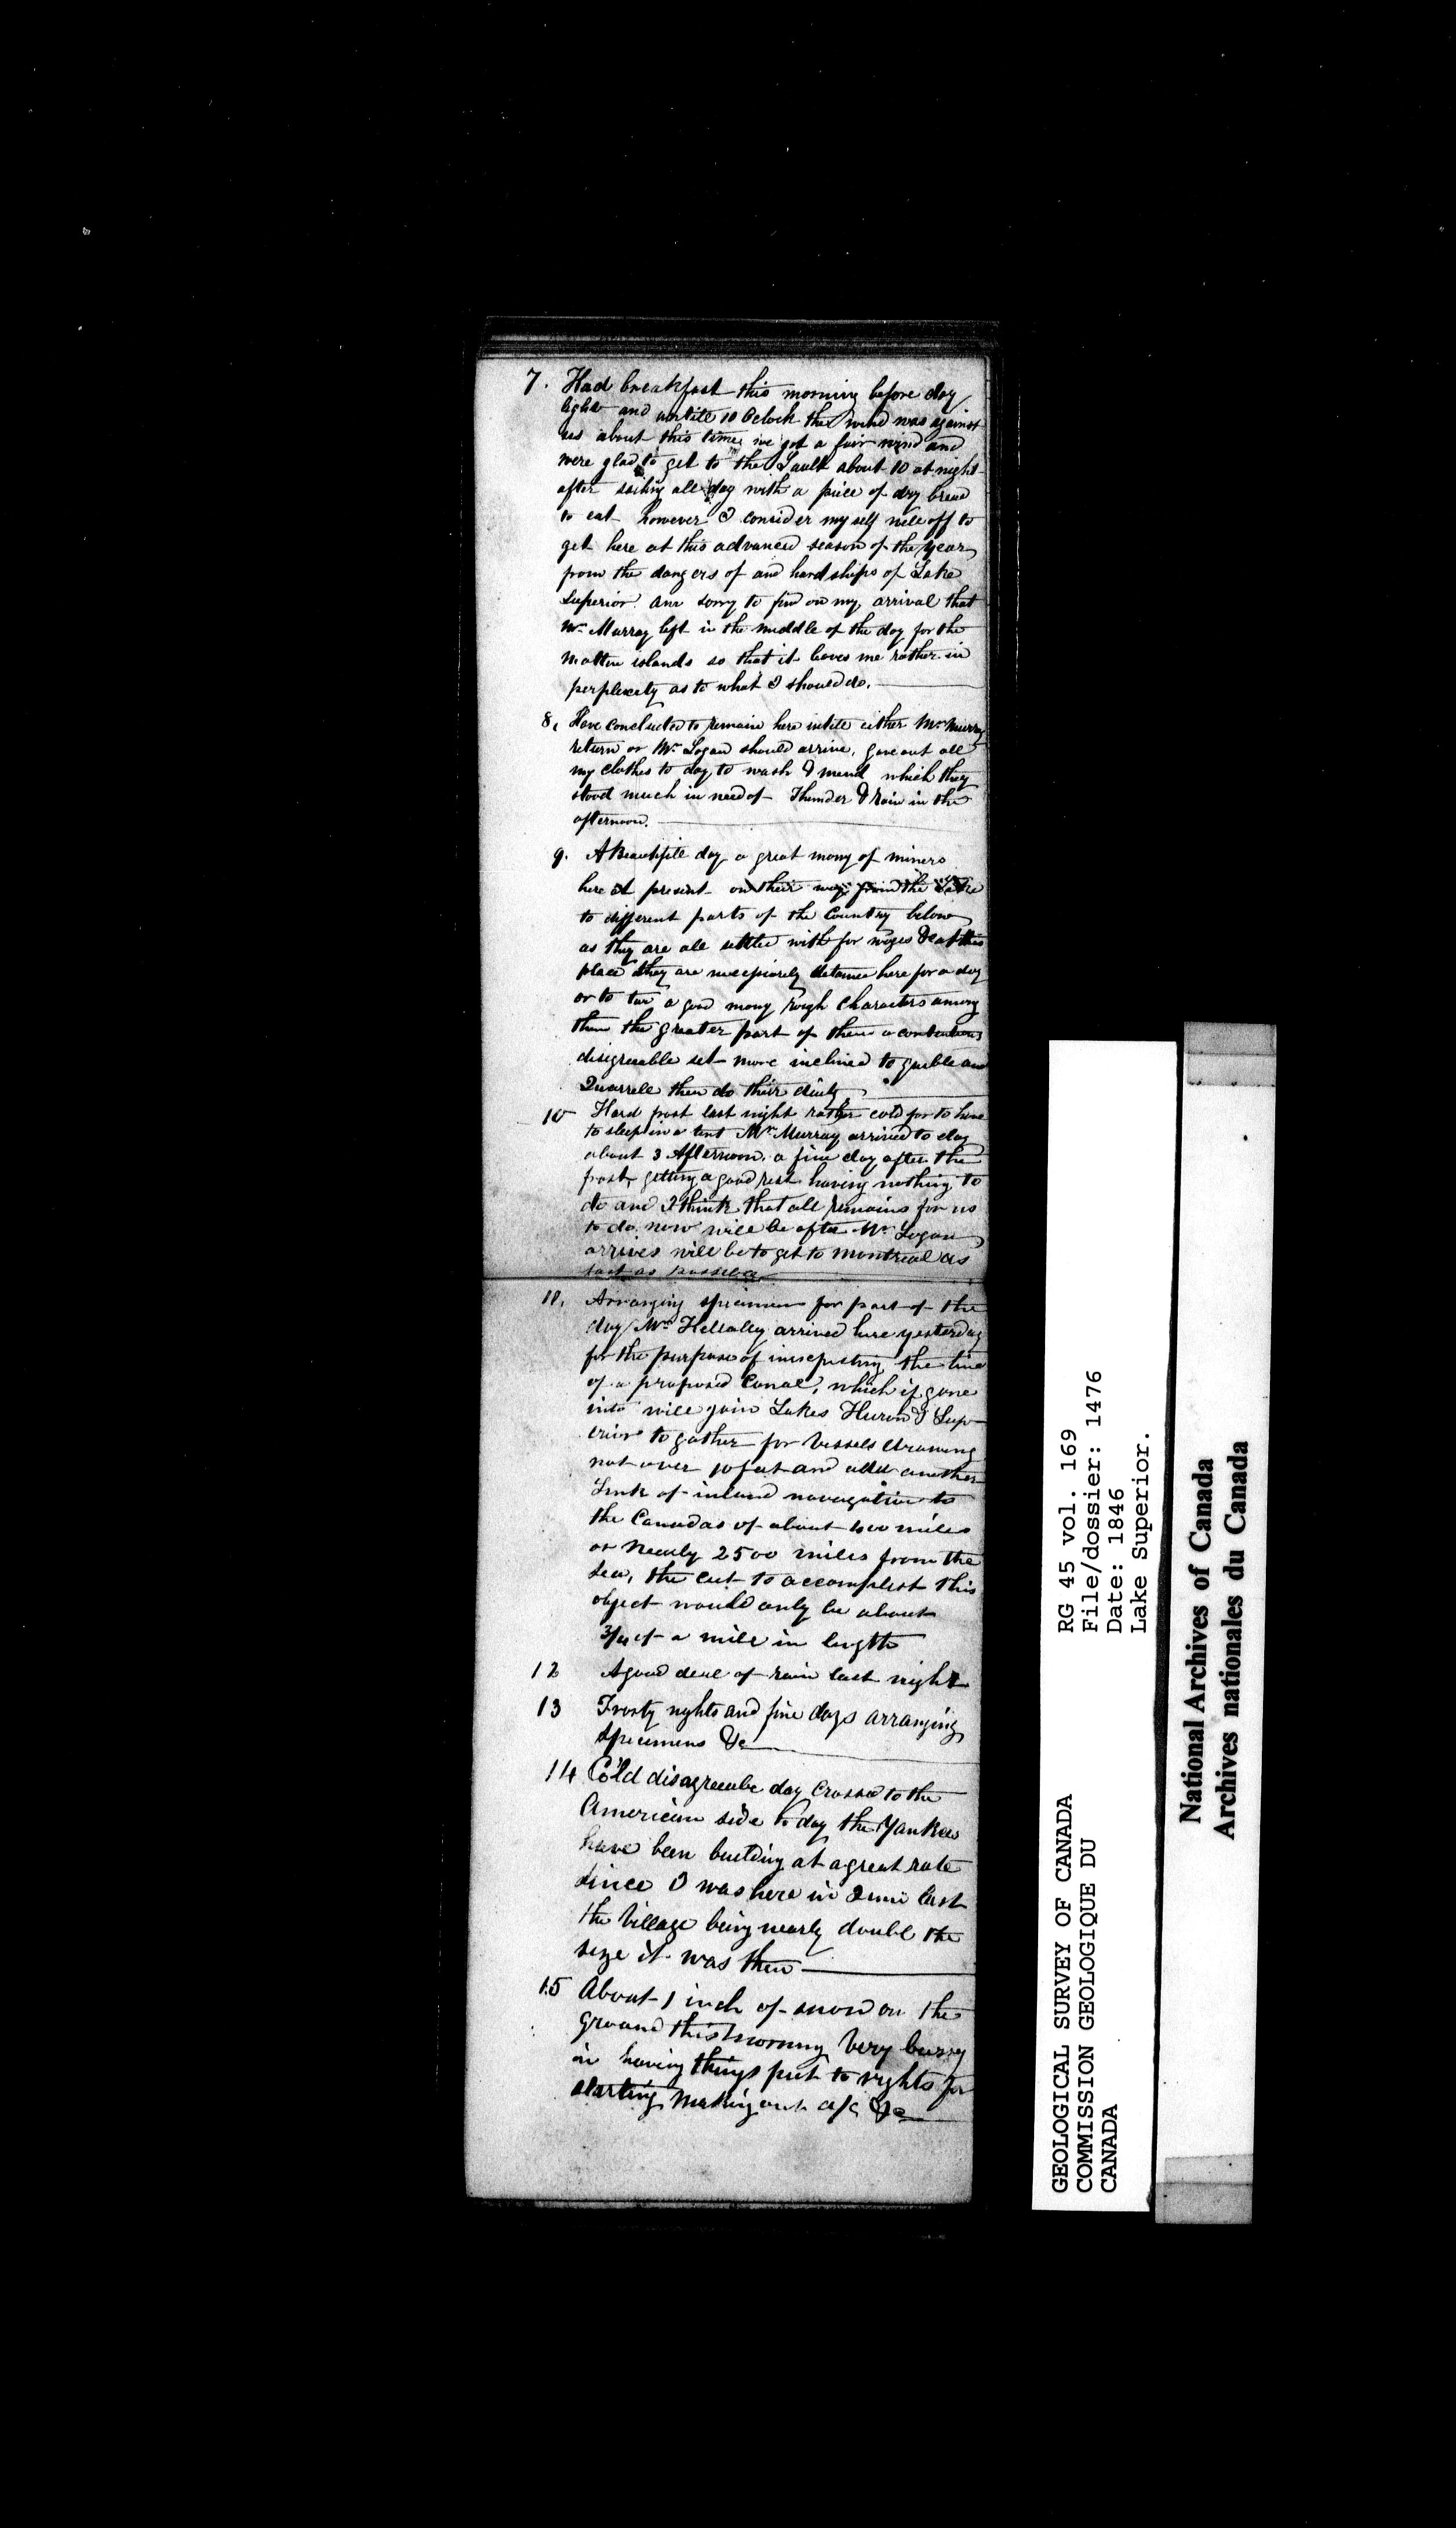 7. Had breakfast this morning before day
light and untile 10 Oclock the wind was against
us about this time we got a fair wind and
were glad to get to the Sault about 10 at night
after sailing all day with a piece of dry bread
to eat however I consider my self well off to
get here at this advanced season of the year
from the dangers of and hardships of Lake
Superior. am sorry to find on my arrival that
Mr. Murray left in the middle of the day for the
islands so that it leaves me rather in
perplexity as to what I should do.
8, Have concluded to remain here untile either Mr. Murray
return or Mr. Logan should arrive, gave out all
my clothes to day to wash & mend which they
stood much in need of Thunder & rain in the
afternoon.
9. A Beautifull day a great many of miners
here at present on their way from the Lake
to different parts of the Country below
as they are all settled with for wages &c at this
place they are necessiarely detained here for a day
or to two a good many rough characters among
them the greater part of them a contentious
disigreeable set more inclined to and
Quarrele then do their duty
10 Hard frost last night rather cold for to have
to sleep in a tent Mr. Murray arrived to day
about 3 Afternoon. a fine day after the
frost, getting a good rest having nothing to
do and I think that all remains for us
to do now will be after Mr. Logan
arrives will be to get to Montreal as
fast as possible
11. Arranging specimens for part of the
day Mr. arrived here yesterday
for the purpose of the line
of a proposed Canal, which if gone
into will join Lakes Huron & Sup-
erior to gather for Vessels drawing
not over 10 feet and add another
Link of inland navagation to
the Canadas of about 400 miles
or nearly 2500 miles from the
sea, the cut to accomplish this
object would only be about
3/4 of a mile in length
12 A good deal of rain last night
13 Frosty nights and fine days arranging
specimens &c
14 Cold disagreeabe day Crossed to the
American side to day the Yankees
have been building at a great rate
since I was here in June last
the Village being nearly double the
size it was then
15 About 1 inch of snow on the
ground this morning Very bussy
in having things put to rights for
starting making out a/c &c
GEOLOGICAL SURVEY OF CANADA
COMMISSION GEOLOGIQUE DU
CANADA
RG 45 vol. 169
File/dossier: 1476
Date: 1846
Lake Superior.
National Archives of Canada
Archives nationales du Canada